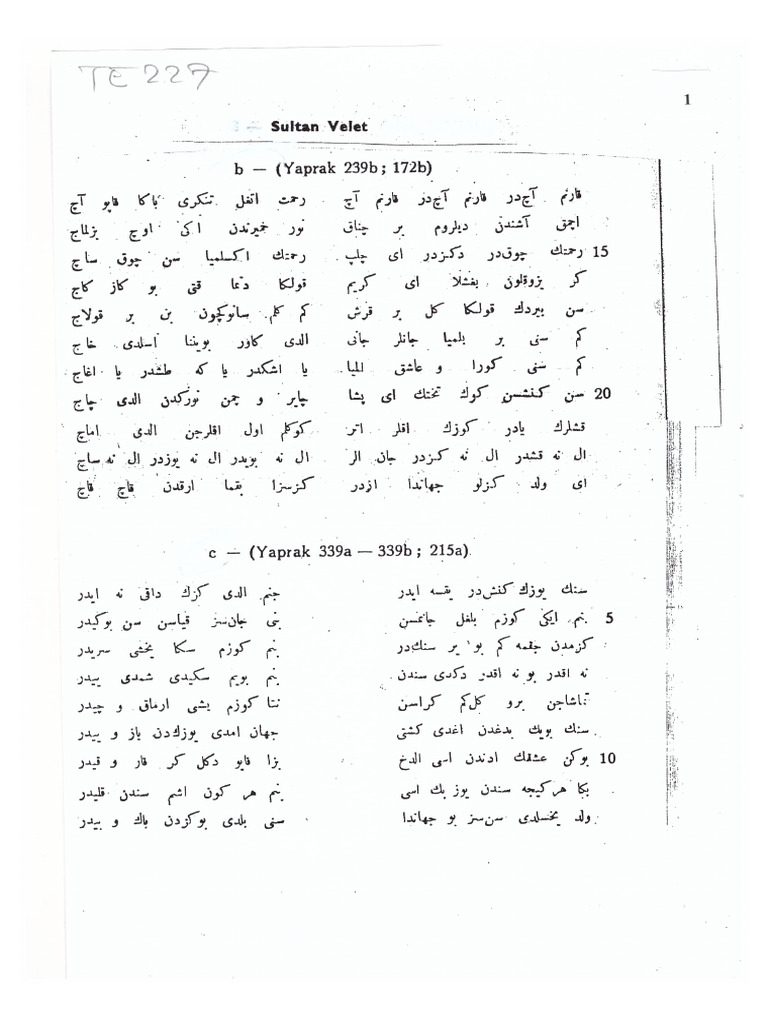 TE 227
1
Sultan Velet
b — (Yaprak 239b; 172b)
قارنم آچ‌در قارنم آچ‌در قارنم آچ رحمت اتغل تنكری باكا قاپو آچ
اچمق آشندن دیلروم بر چناق نور خمیرندن اكی اوچ بزلماج
15 رحمتك چوق‌در دكزدر ای چلپ رحمتك اكسلمیا سن چوق ساچ
كر یزوقلون بغشلا ای كریم قولكا دعا قتی بو كاز كاج
سن بیردك قولكا كل بر قرش كم كلم سانوكچون بن بر قولاج
كم سنی بر بلمیا جانلر جانی الدی كاور بویننا اسلدی خاج
كم سنی كورا و عاشق المیا یا اشكدر یا كه طشدر یا اغاج
20 سن كنشسن كوك تختك ای پشا چایر و چمن نوركدن الدی چاج
قشلرك یادر كوزك اقلر اتر كوكلم اول اقلرجن الدی اماج
ال نه قشدر ال نه كزدر جان الر ال نه بویدر ال نه یوزدر ال نه ساچ
ای ولد كزلو جهاندا ازدر كزسزا بقما ارقدن قاچ قاچ
c — (Yaprak 339a — 339b; 215a)
سنك یوزك كنش‌در یقسه ایدر جنم الدی كزك داقی نه ایدر
5 بنم ایكی كوزم بلغل جانمسن بنی جان‌سز قیاسن سن بوكیدر
كزمدن چقمه كم بو یر سنك‌در بنم كوزم سكا یخشی سریدر
نه اقدر بو نه اقدر دكدی سندن بنم بویم سكیدی شمدی ییدر
تماشاجن برو كل‌كم كراسن نتا كوزم یشی ارماق و چیدر
سنك بویك بدغدن اغدی كشتی جهان امدی یوزك‌دن یاز و ییدر
10 بوكن عشقك ادندن اسی الدخ بزا قایو دكل كر قار و قیدر
بكا هركیجه سندن یوز بك اسی بنم هر كون اشم سندن قلیدر
ولد یخسلدی سن‌سز بو جهاندا سنی بلدی بوكزدن باك و بیدر